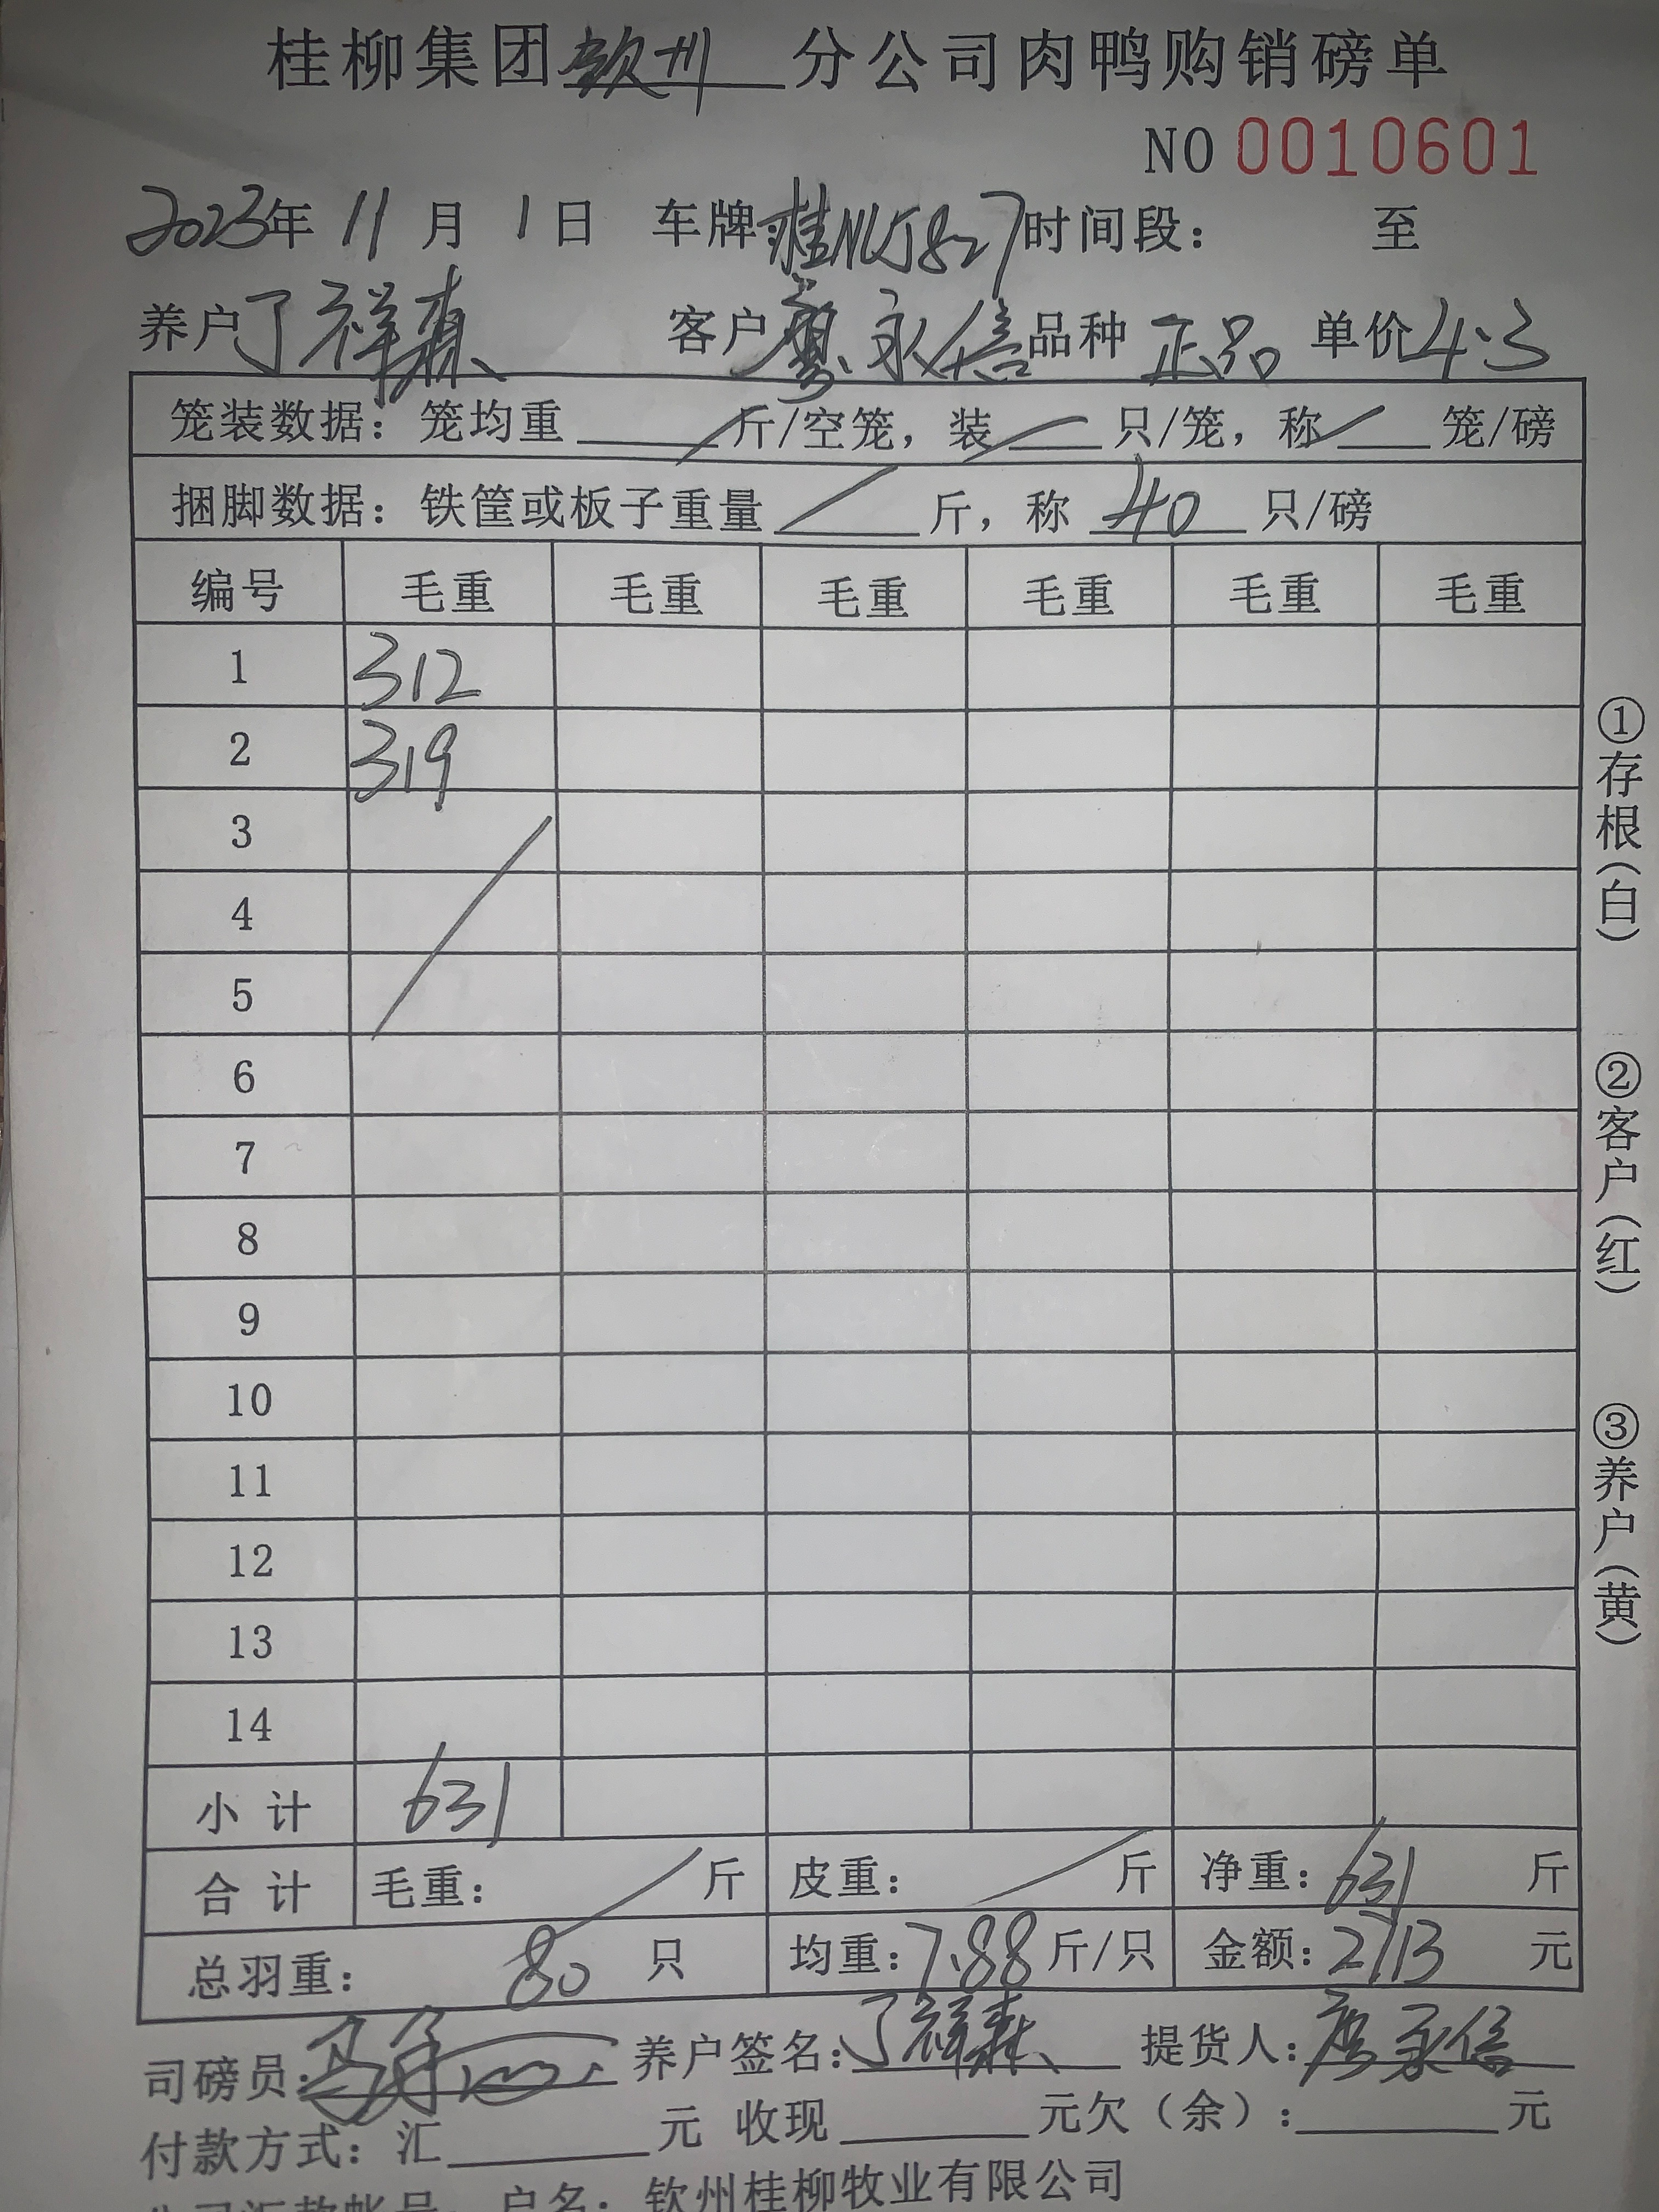 桂柳集团钦州分公司肉鸭购销磅单
NO 0010601
2023年 11月 1日 车牌桂NUJ827时间段： 至
养户丁祥森 客户廖永信品种 正品 单价4.3
笼装数据：笼均重 / 斤/空笼，装 / 只/笼，称 / 笼/磅
捆脚数据：铁筐或板子重量 / 斤，称 40 只/磅
编号 毛重 毛重 毛重 毛重 毛重 毛重
1 312
2 319
3
4
5
6
7
8
9
10
11
12
13
14
小计 631
合计 毛重： / 斤 皮重： / 斤 净重：631 斤
总羽重： 80 只 均重：7.88斤/只 金额：2713 元
司磅员： 养户签名：丁祥森 提货人：廖永信
付款方式：汇 元 收现 元欠（余）： 元
户名：钦州桂柳牧业有限公司
①存根（白）
②客户（红）
③养户（黄）